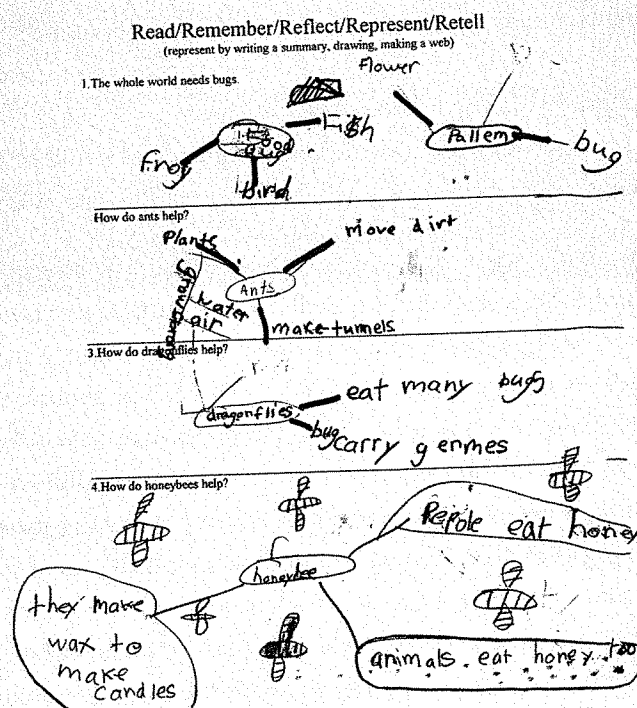 Read/Remember/Reflect/Represent/Retell
(represent by writing a summary, drawing, making a web)
1.The whole world needs bugs.
Flower
Fish
Pallem
bug
Frog
bird
How do ants help?
Plants
move dirt
Ants
water
air
make tunnels
3.How do dragonflies help?
eat many bugs
dragonflies
bug carry germes
4.How do honeybees help?
Pepole eat honey
honeybee
they make
wax to
make
candles
animals. eat honey too